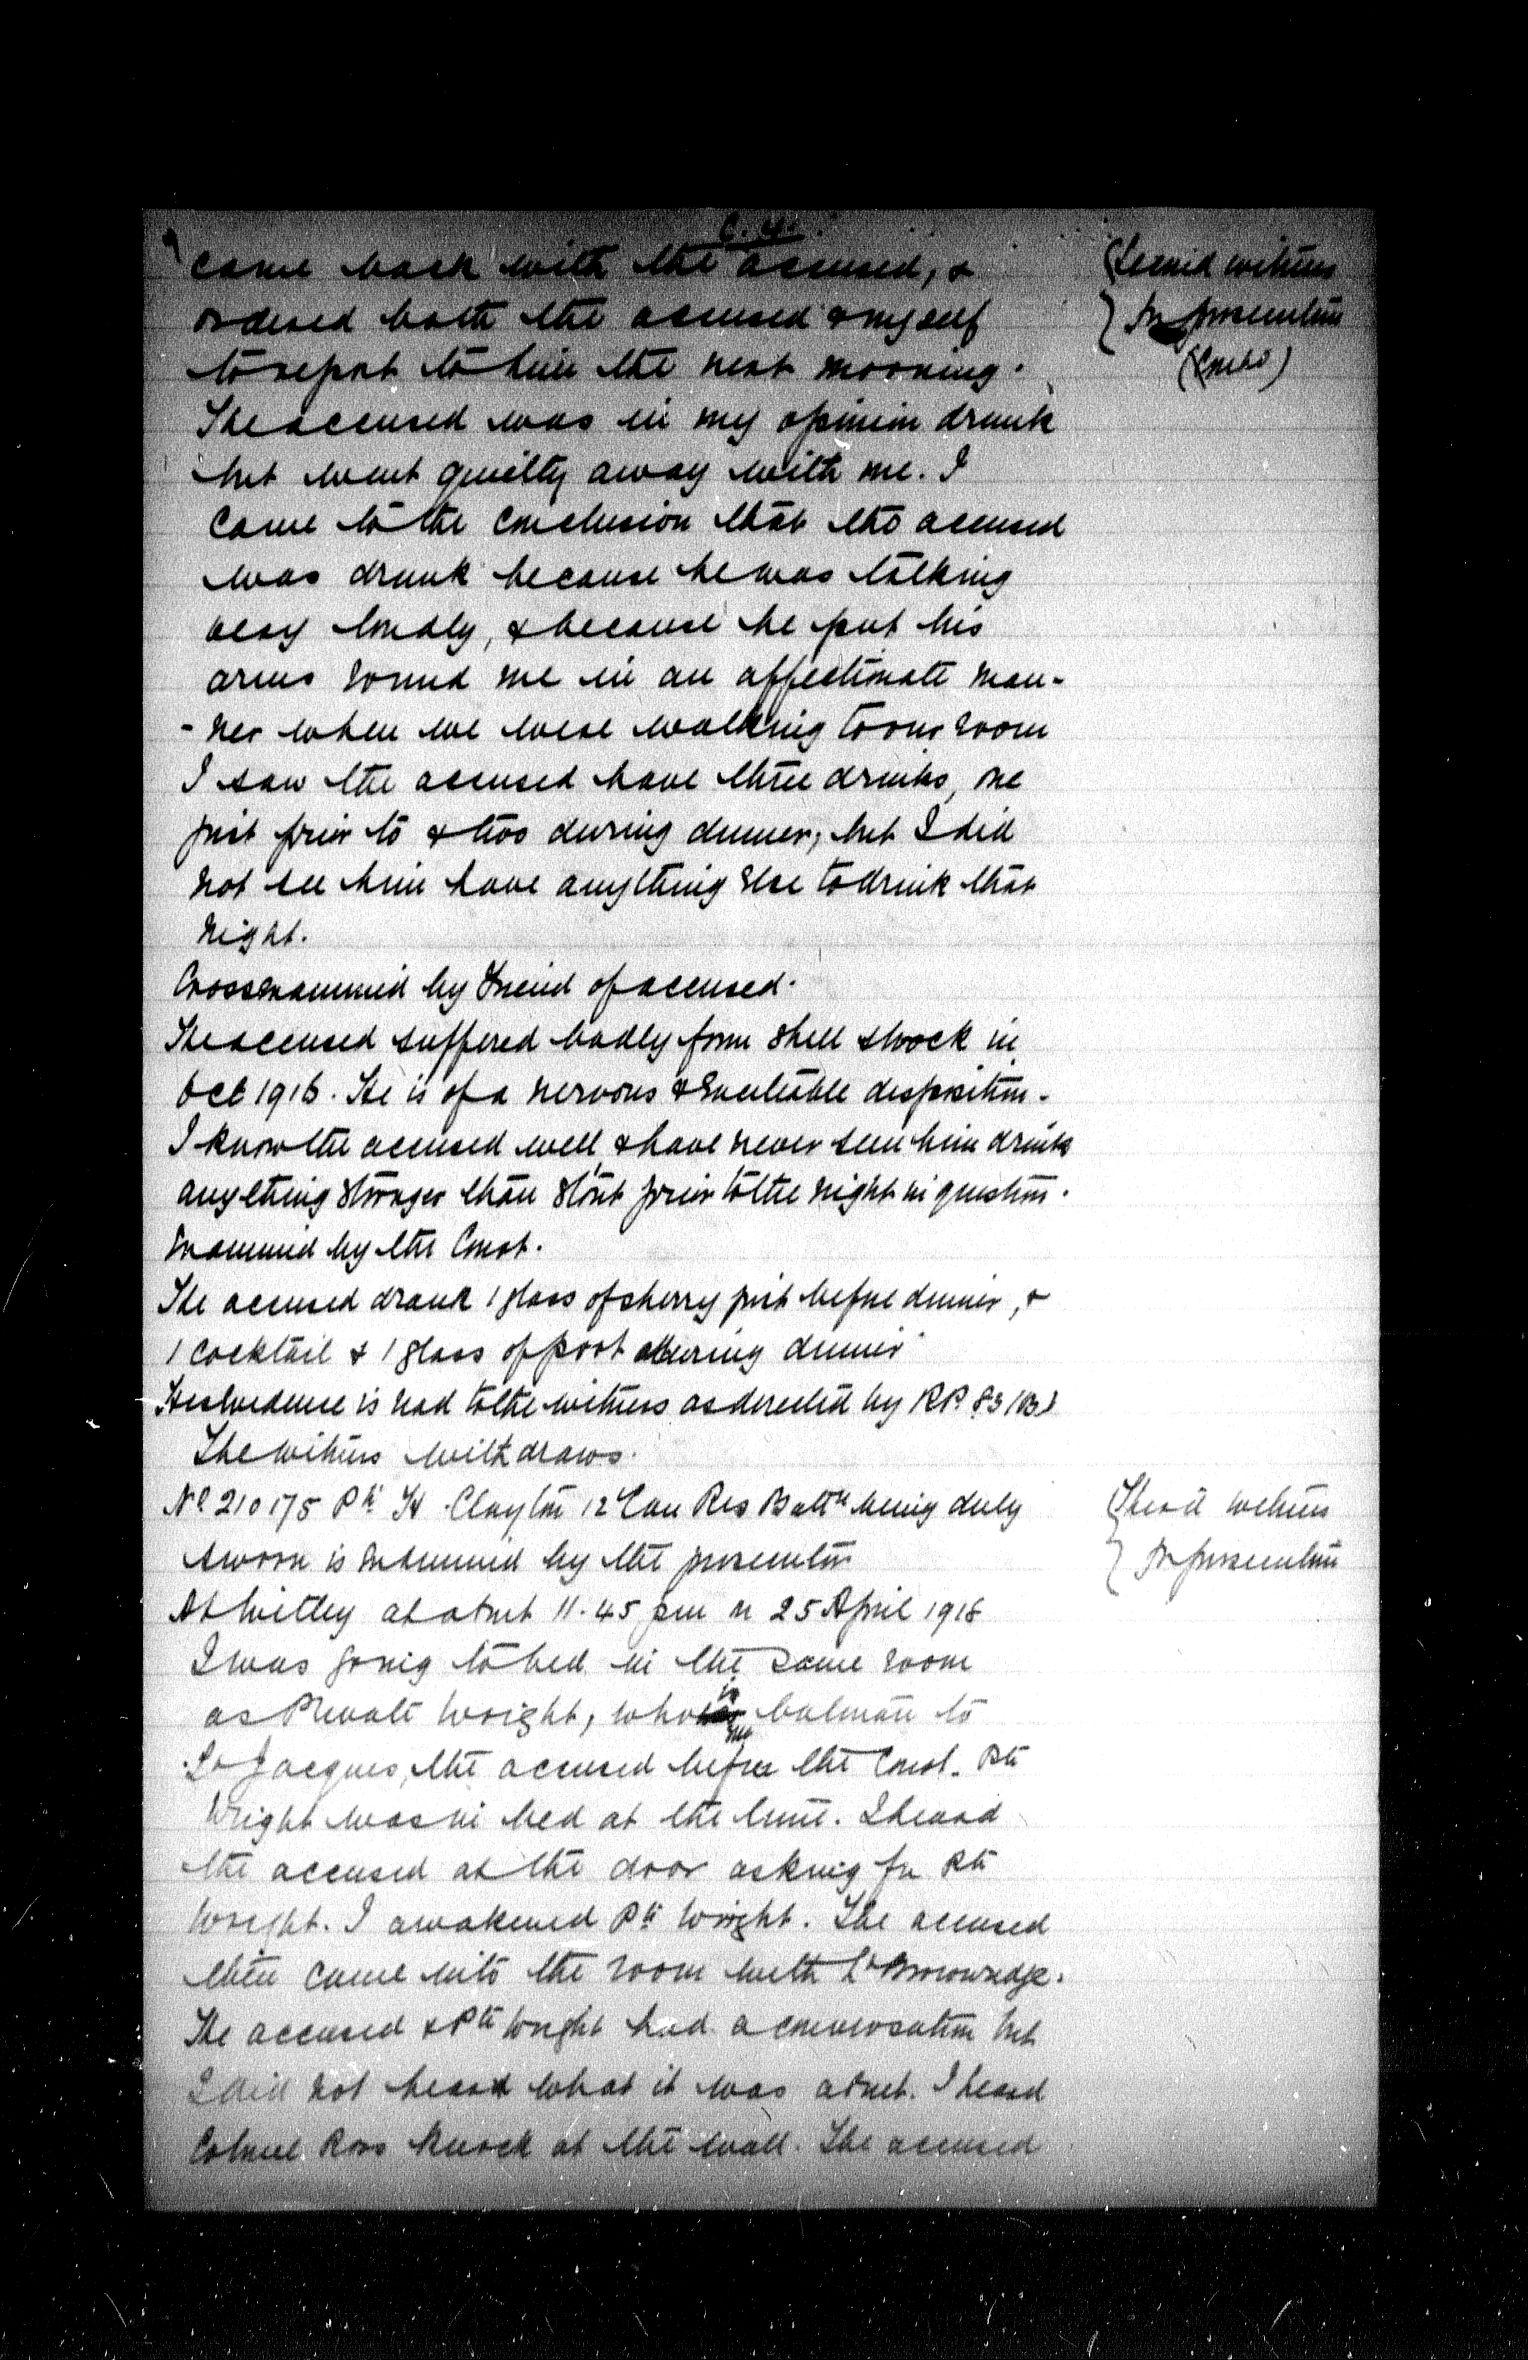 C. 4.
came back with the accused, &
ordered both the accused & myself
to report to him the next morning.
The accused was in my opinion drunk
but went quietly away with me. I
came to the conclusion that the accused
was drunk because he was talking
very loudly, & because he put his
arms round me in an affectionate man-
-ner when we were walking to our room
I saw the accused have three drinks, one
just prior to & two during dinner, but I did
not see him have anything else to drink that
night.
Crossexamined by Friend of accused.
The accused suffered badly from shell shock in
Oct 1916. He is of a nervous & excitable disposition.
I know the accused well, & have never seen him drink
anything stronger than stout prior to the night in question.
Examined by the Court.
The accused drank 1 glass of sherry just before dinner, &
1 cocktail & 1 glass of port during dinner
His evidence is read to the witness as directed by RP. 83 (B)
The witness withdraws.
(Second witness
for prosecution
(Contd)
No 210175 Pte H. Clayton 12 Can Res Battn being duly
sworn is examined by the prosecutor
(Third witness
for prosecution
At Witley at about 11.45 pm on 25 April 1918
I was going to bed in the same room
as Private Wright, who is batman to
Lt Jacques, the accused before the Court. Pte
Wright was in bed at the time. I heard
the accused at the door asking for Pte
Wright. I awakened Pte Wright. The accused
then came into the room with Lt Brownridge.
The accused & Pte Wright had a conversation but
I did not heard what it was about. I heard
Colonel Ross knock at the wall. The accused